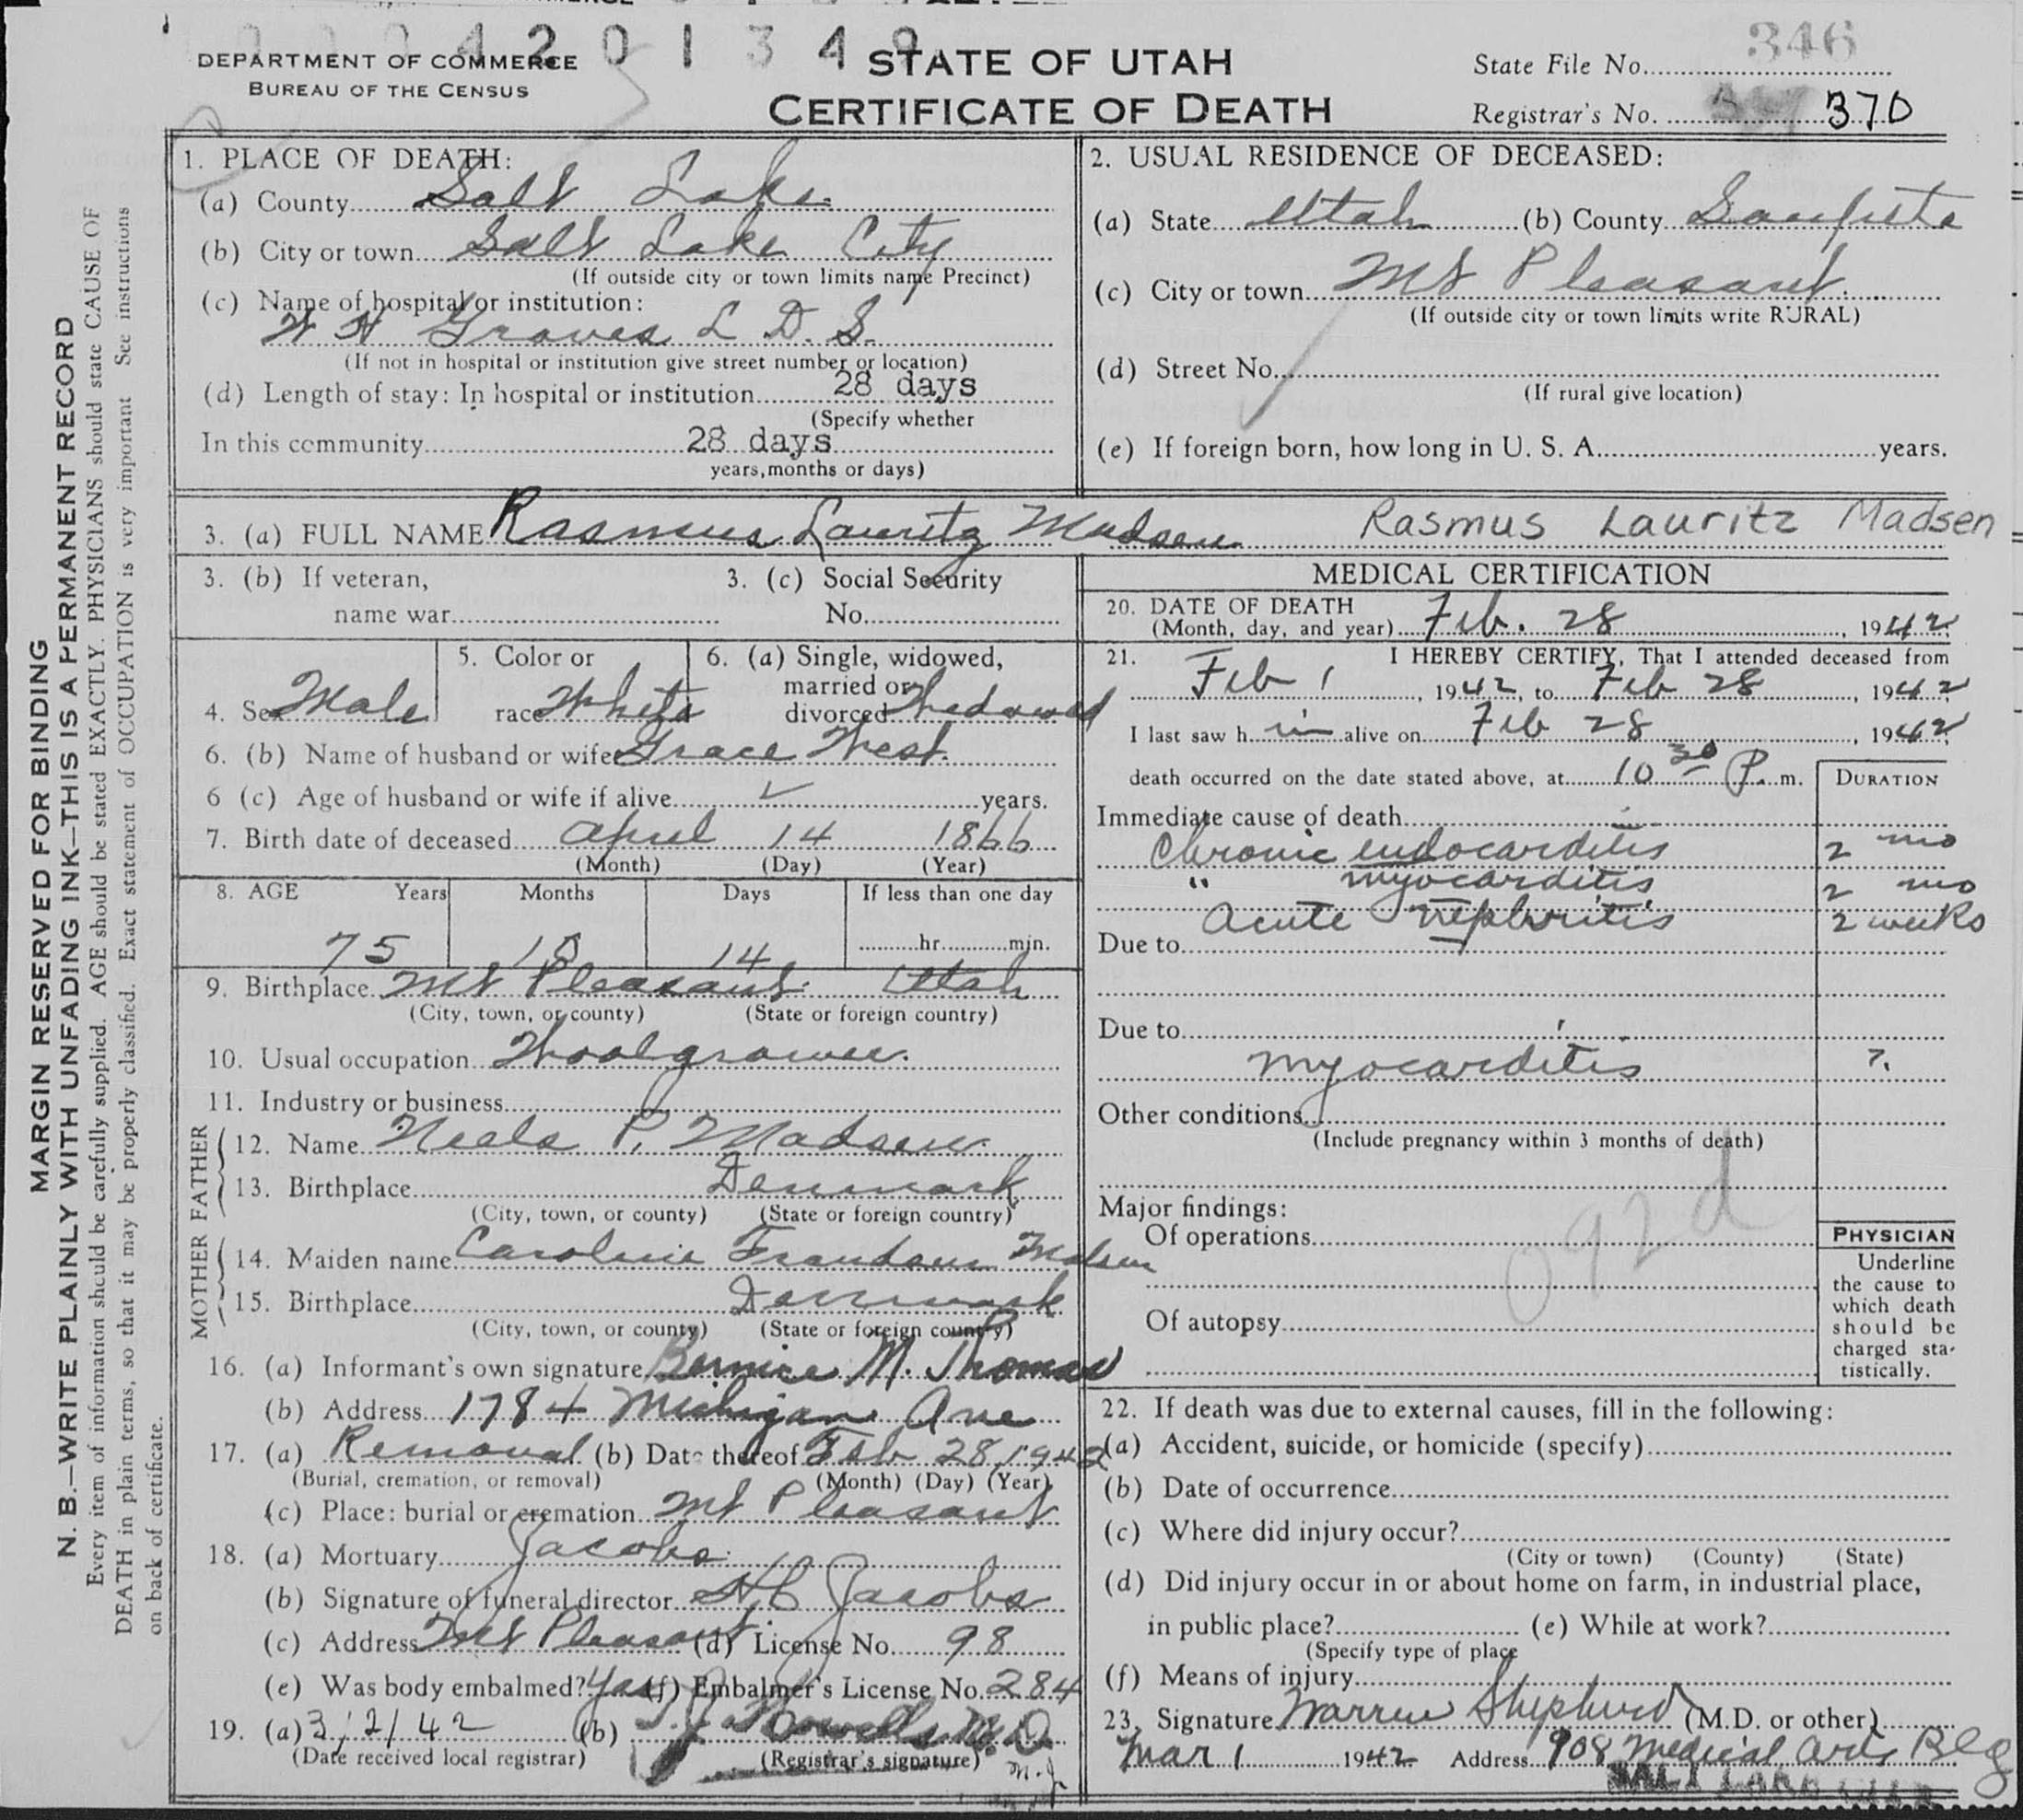 DEPARTMENT OF COMMERCE
BUREAU OF THE CENSUS
STATE OF UTAH
CERTIFICATE OF DEATH
State File No. 346
Registrar's No. 370
MARGIN RESERVED FOR BINDING
N. B.—WRITE PLAINLY WITH UNFADING INK—THIS IS A PERMANENT RECORD
Every item of information should be carefully supplied. AGE should be stated EXACTLY. PHYSICIANS should state CAUSE OF
DEATH in plain terms, so that it may be properly classified. Exact statement of OCCUPATION is very important See instructions
on back of certificate.
1. PLACE OF DEATH:
(a) County Salt Lake
(b) City or town Salt Lake City
(If outside city or town limits name Precinct)
(c) Name of hospital or institution:
W H Groves L D S.
(If not in hospital or institution give street number or location)
(d) Length of stay: In hospital or institution 28 days
(Specify whether
In this community 28 days
years, months or days)
2. USUAL RESIDENCE OF DECEASED:
(a) State Utah (b) County Sanpete
(c) City or town Mt Pleasant
(If outside city or town limits write RURAL)
(d) Street No.
(If rural give location)
(e) If foreign born, how long in U. S. A. years.
3. (a) FULL NAME Rasmus Lauritz Madsen Rasmus Lauritz Madsen
3. (b) If veteran,
name war
3. (c) Social Security
No.
4. Sex Male
5. Color or
race White
6. (a) Single, widowed,
married or
divorced Widowed
6. (b) Name of husband or wife Grace West.
6 (c) Age of husband or wife if alive years.
7. Birth date of deceased April 14 1866
(Month) (Day) (Year)
8. AGE Years Months Days If less than one day
75 10 14 hr. min.
9. Birthplace Mt Pleasant Utah
(City, town, or county) (State or foreign country)
10. Usual occupation Woolgrower.
11. Industry or business
FATHER
12. Name Neels P. Madsen
13. Birthplace Denmark
(City, town, or county) (State or foreign country)
MOTHER
14. Maiden name Caroline Frandsen Madsen
15. Birthplace Denmark
(City, town, or county) (State or foreign country)
16. (a) Informant's own signature Bernice M. Thomas
(b) Address 1784 Michigan Ave
17. (a) Removal (b) Date thereof Feb 28, 1942
(Burial, cremation, or removal) (Month) (Day) (Year)
(c) Place: burial or cremation Mt Pleasant
18. (a) Mortuary Jacobs
(b) Signature of funeral director Jacobs
(c) Address Mt Pleasant (d) License No. 98
(e) Was body embalmed? Yes (f) Embalmer's License No. 284
19. (a) 3/2/42 (b)
(Date received local registrar) (Registrar's signature)
MEDICAL CERTIFICATION
20. DATE OF DEATH
(Month, day, and year) Feb. 28, 1942
21. I HEREBY CERTIFY, That I attended deceased from
Feb 1, 1942, to Feb 28, 1942
I last saw h im alive on Feb 28, 1942
death occurred on the date stated above, at 10 30 P. m.
DURATION
Immediate cause of death
Chronic endocarditis 2 mo
" myocarditis 2 mo
Acute nephritis 2 weeks
Due to
Due to
myocarditis ?.
Other conditions
(Include pregnancy within 3 months of death)
Major findings:
Of operations
092d
Of autopsy
PHYSICIAN
Underline
the cause to
which death
should be
charged sta-
tistically.
22. If death was due to external causes, fill in the following:
(a) Accident, suicide, or homicide (specify)
(b) Date of occurrence
(c) Where did injury occur?
(City or town) (County) (State)
(d) Did injury occur in or about home on farm, in industrial place,
in public place? (e) While at work?
(Specify type of place
(f) Means of injury
23. Signature Warren Shepherd (M.D. or other)
Mar 1 1942 Address 908 Medical Arts Blg